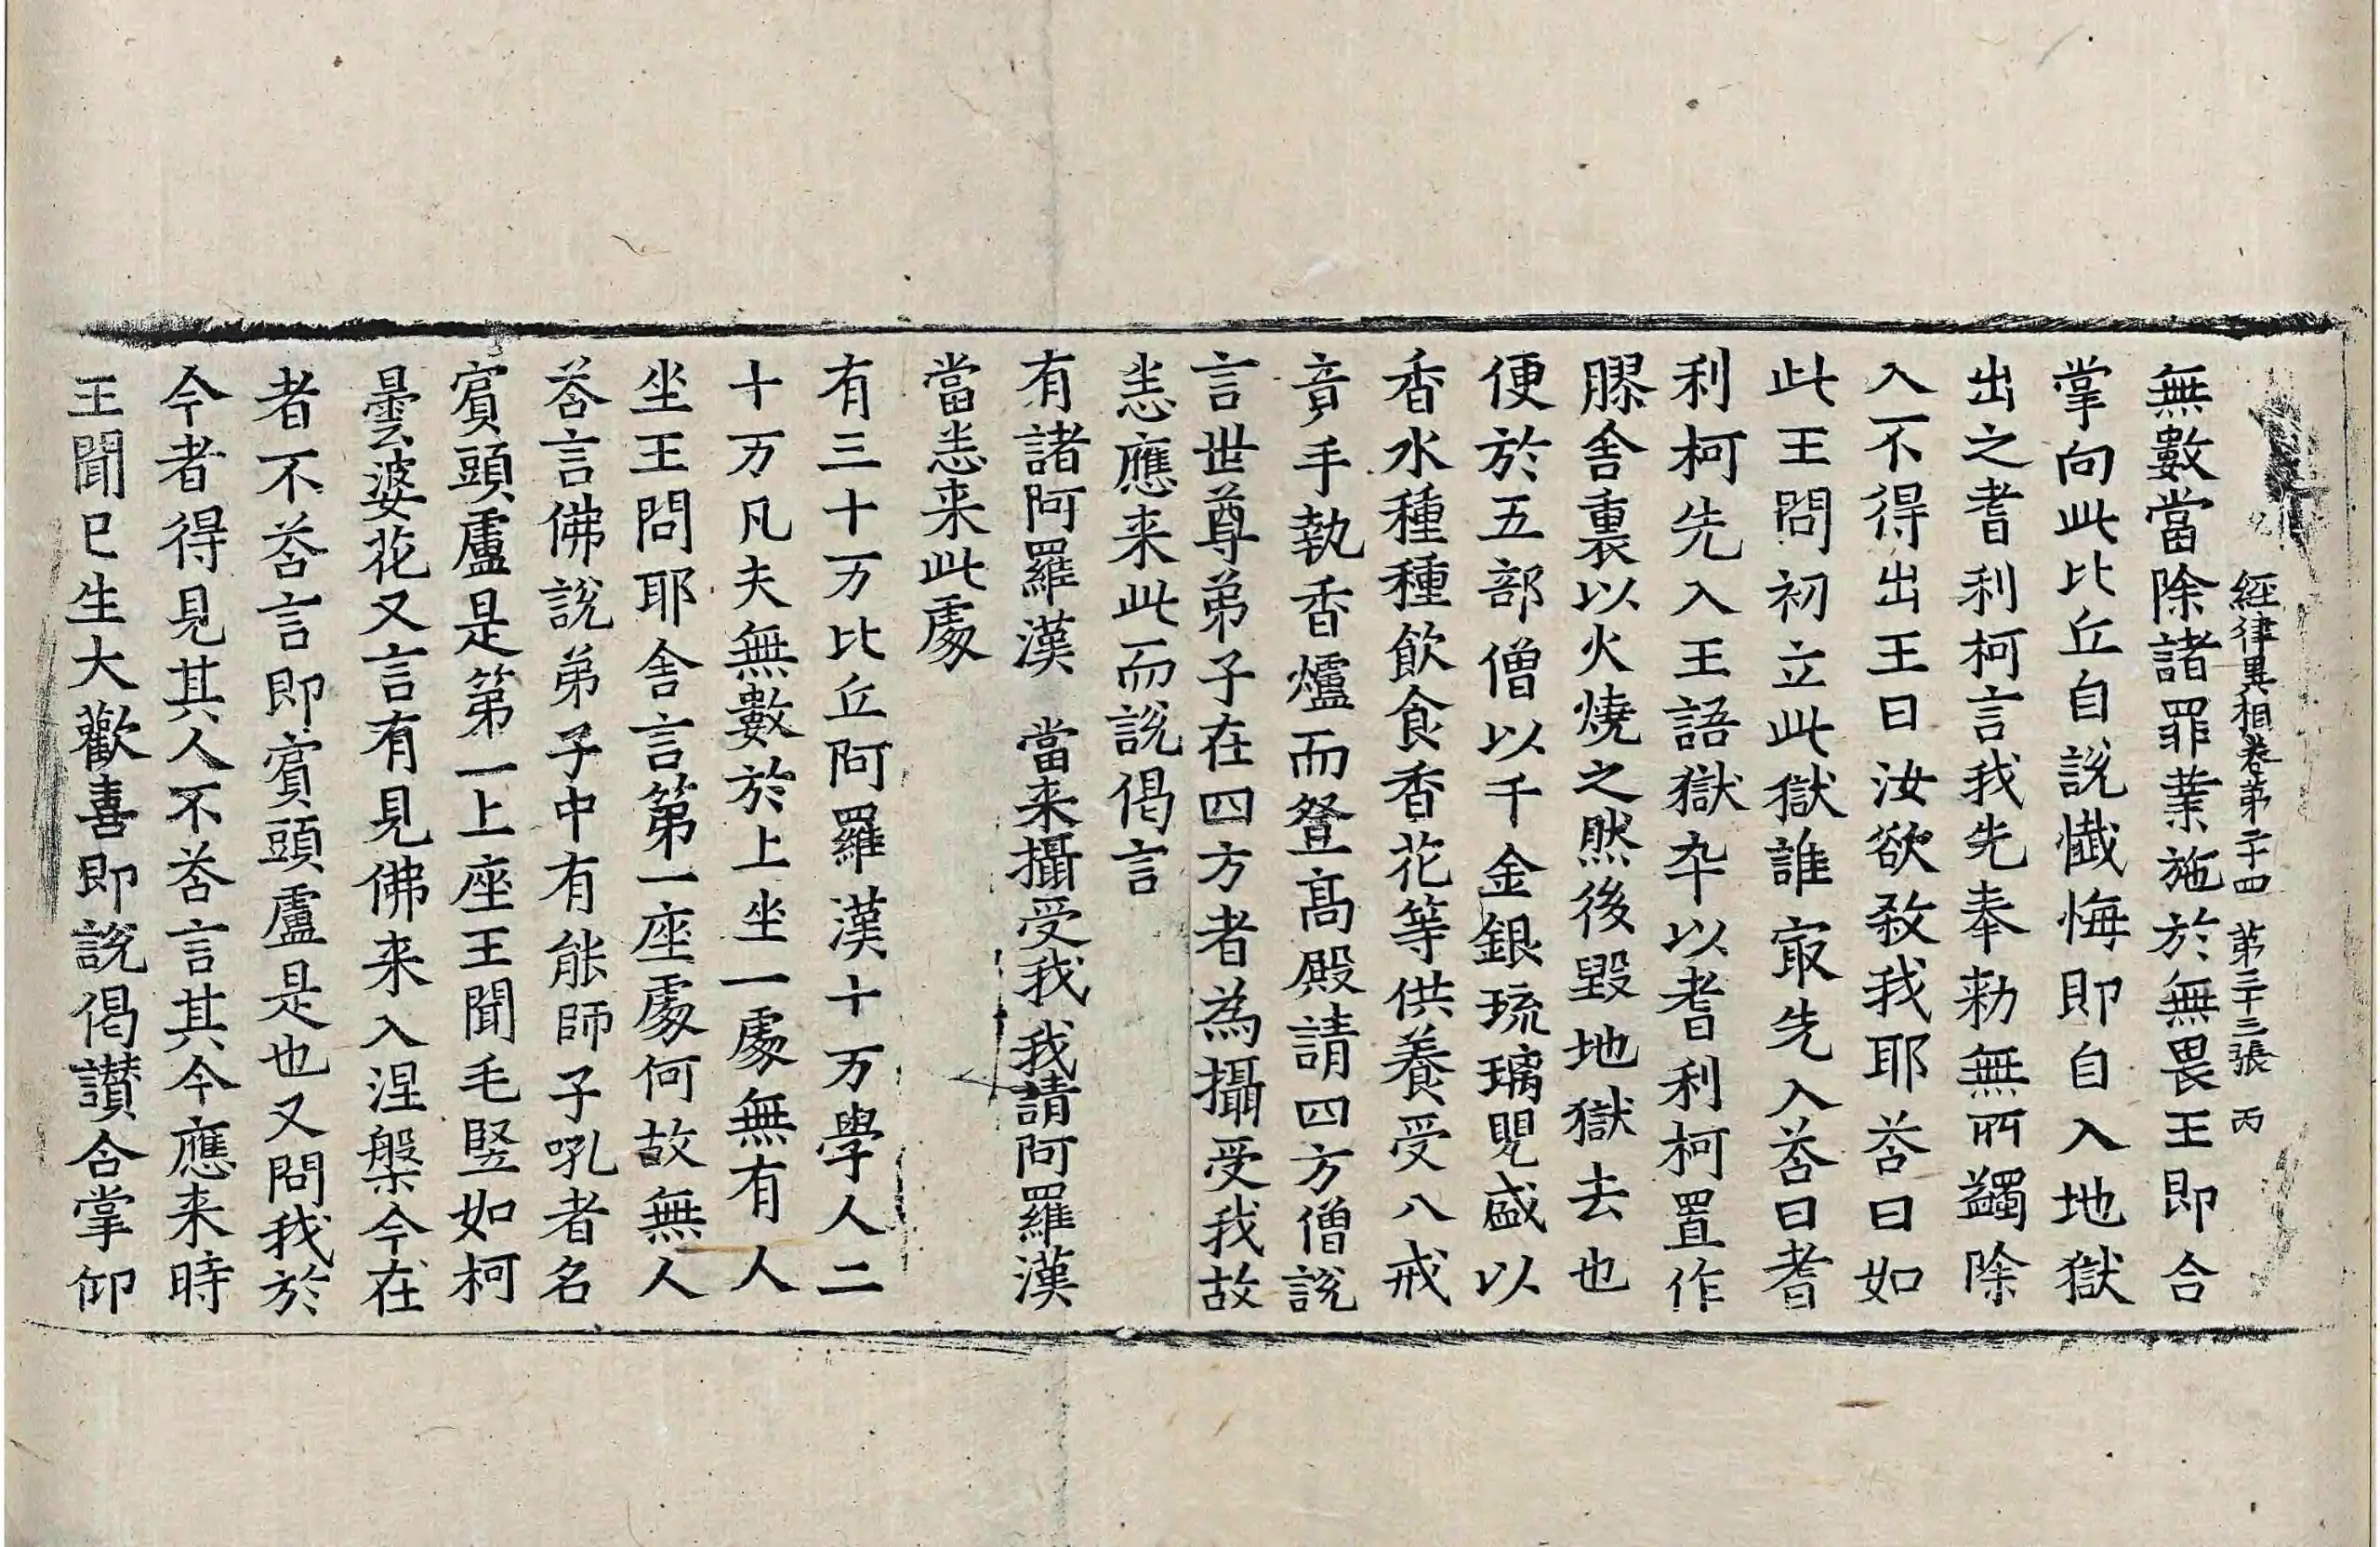 經律異相卷第二十四　第三十三張　丙
無數當除諸罪業施於無畏王即合
掌向此比丘自說懺悔即自入地獄
出之耆利柯言我先奉勑無所蠲除
入不得出王曰汝欲敎我耶荅曰如
此王問初立此獄誰㝡先入荅曰耆
利柯先入王語獄卒以耆利柯置作
膠舍裏以火燒之然後毀地獄去也
便於五部僧以千金銀琉璃甖盛以
香水種種飲食香花等供養受八戒
音手執香爐而登高殿請四方僧說
言世尊弟子在四方者為攝受我故
恙應来此而說偈言
有諸阿羅漢　當来攝受我　我請阿羅漢
當恙来此處
有三十万比丘阿羅漢十万學人二
十万凡夫無數於上坐一處無有人
坐王問耶舍言第一座處何故無人
荅言佛說弟子中有能師子吼者名
賓頭盧是第一上座王聞毛竪如柯
曇婆花又言有見佛来入涅槃今在
者不荅言即賓頭盧是也又問我於
今者得見其人不荅言其今應来時
王聞巳生大歡喜即說偈讃合掌仰